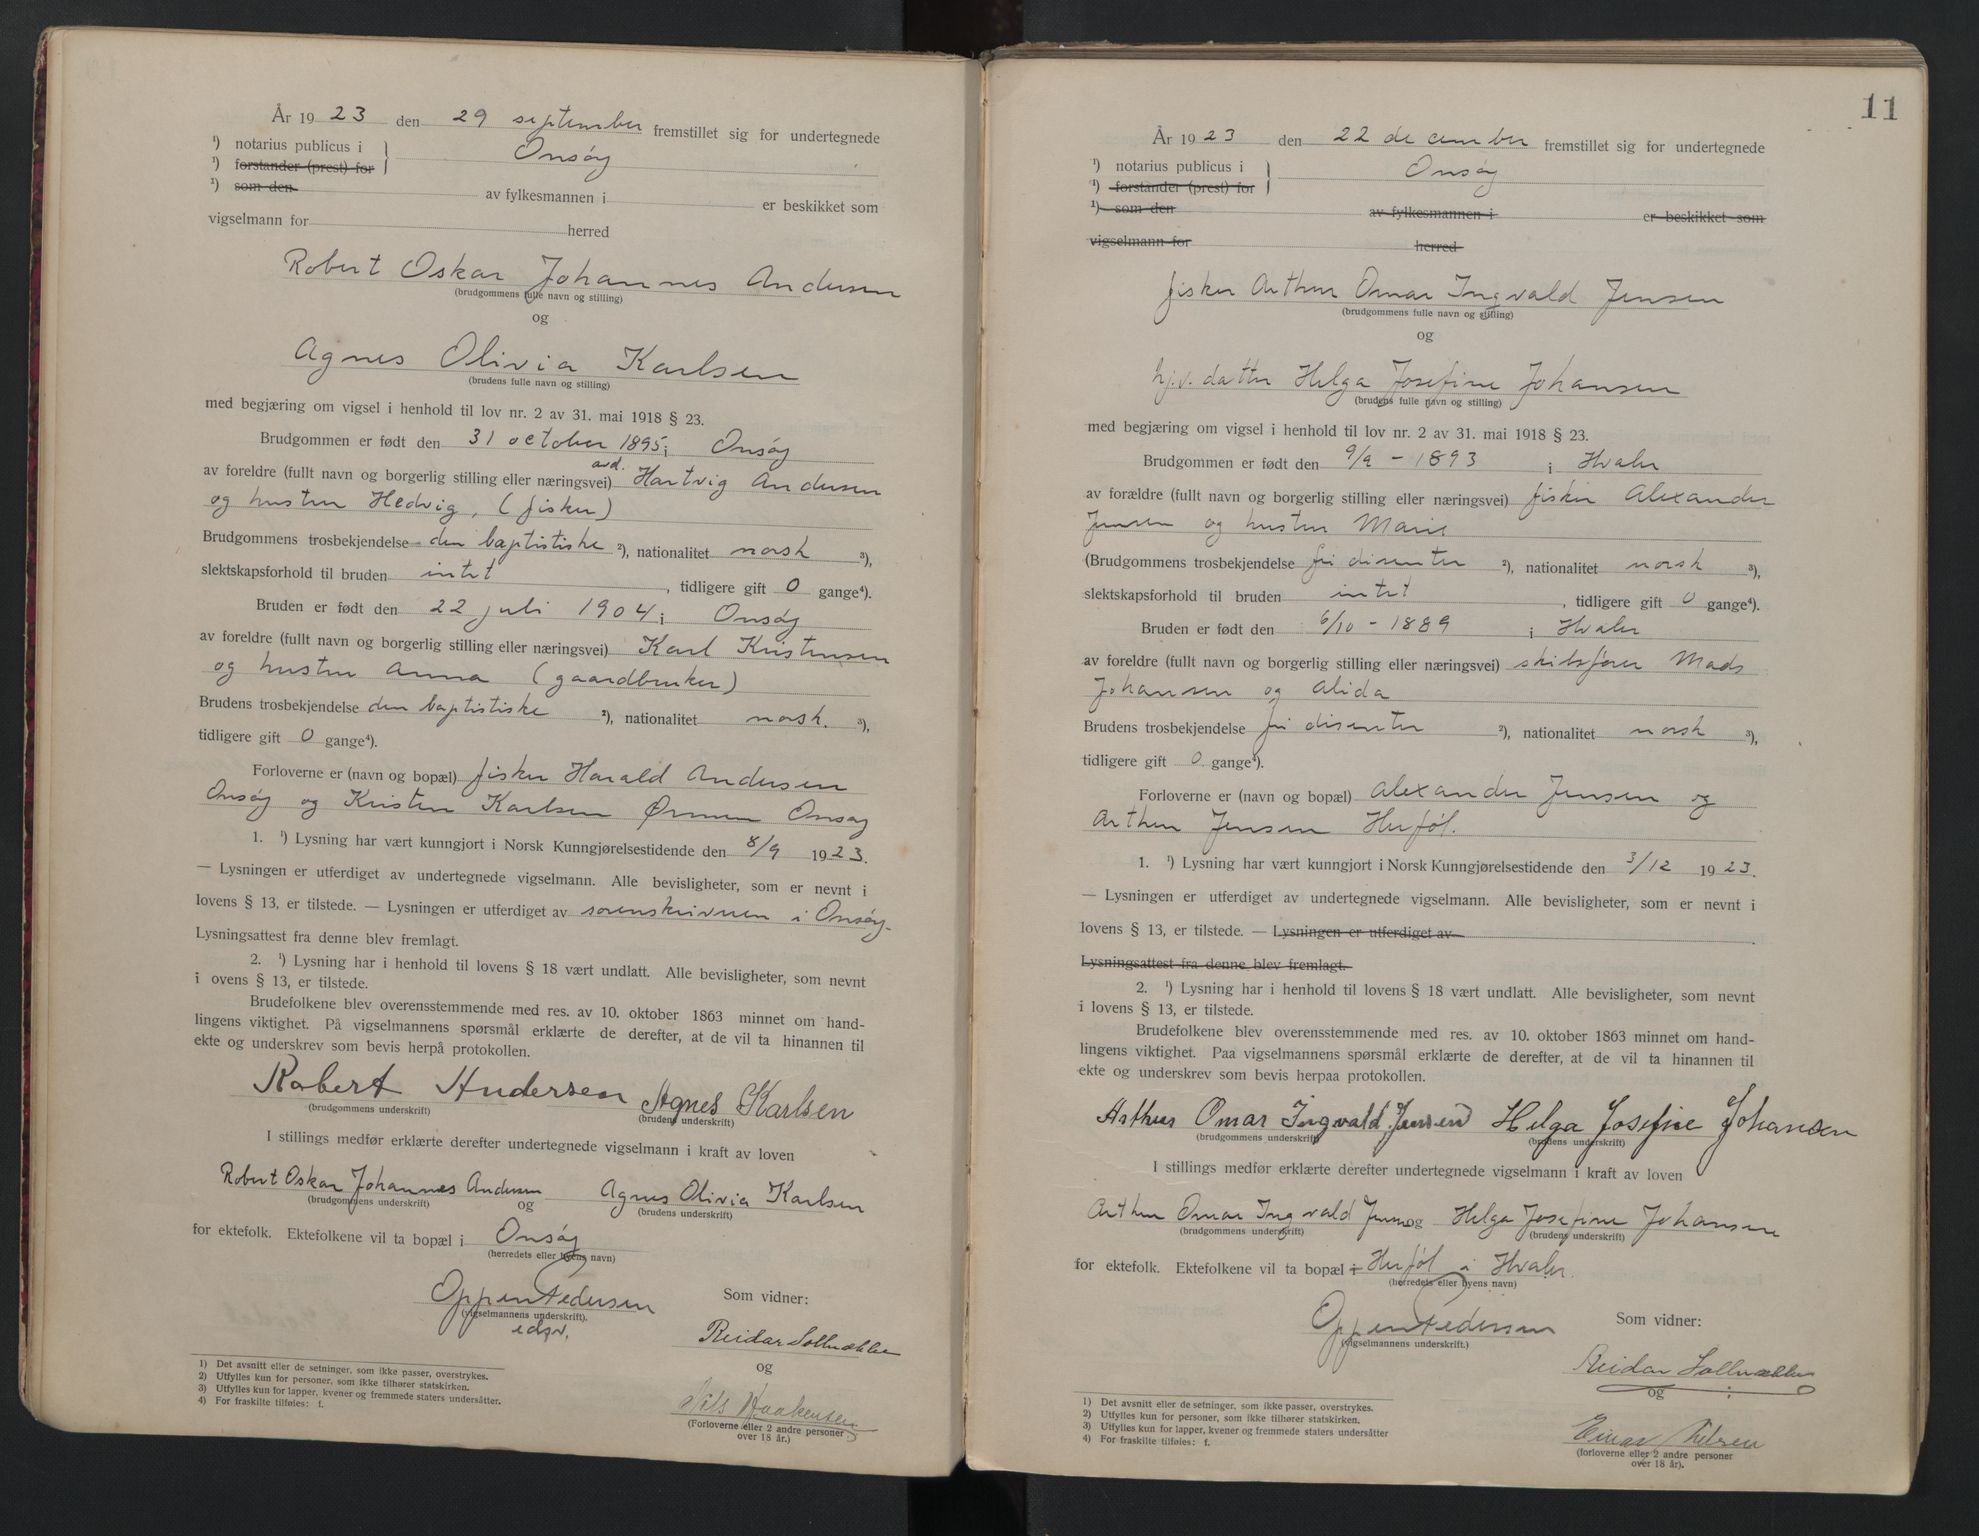 År 1923 den 29 september fremstillet sig for undertegnede
¹) notarius publicus i } Onsøy
¹) forstander (prest) for
¹) som den av fylkesmannen i er beskikket som
vigselmann for herred
Robert Oskar Johannes Andersen
(brudgommens fulle navn og stilling)
og
Agnes Olivia Karlsen
(brudens fulle navn og stilling)
med begjæring om vigsel i henhold til lov nr. 2 av 31. mai 1918 § 23.
Brudgommen er født den 31 october 1895 i Onsøy
av foreldre (fullt navn og borgerlig stilling eller næringsvei) avd. Hartvig Andersen
og hustru Hedvig, (fisker)
Brudgommens trosbekjendelse den baptistiske ²), nationalitet norsk ³),
slektskapsforhold til bruden intet, tidligere gift 0 gange⁴).
Bruden er født den 22 juli 1904 i Onsøy
av foreldre (fullt navn og borgerlig stilling eller næringsvei) Karl Kristensen
og hustru Anna (gaardbruker)
Brudens trosbekjendelse den baptistiske ²), nationalitet norsk. ³),
tidligere gift 0 gange⁴).
Forloverne er (navn og bopæl) fisker Harald Andersen
Onsøy og Kristen Karlsen Ørmen Onsøy
1. ¹) Lysning har vært kunngjort i Norsk Kunngjørelsestidende den 8/9 1923.
— Lysningen er utferdiget av undertegnede vigselmann. Alle bevisligheter, som er nevnt i
lovens § 13, er tilstede. — Lysningen er utferdiget av sorenskriveren i Onsøy.
Lysningsattest fra denne blev fremlagt.
2. ¹) Lysning har i henhold til lovens § 18 vært undlatt. Alle bevisligheter, som nevnt
i ovens § 13, er tilstede.
Brudefolkene blev overensstemmende med res. av 10. oktober 1863 minnet om hand-
lingens viktighet. På vigselmannens spørsmål erklærte de derefter, at de vil ta hinannen til
ekte og underskrev som bevis herpå protokollen.
Robert Andersen Agnes Karlsen
(brudgommens underskrift) (brudens underskrift)
I stillings medfør erklærte derefter undertegnede vigselmann i kraft av loven
Robert Oskar Johannes Andersen og Agnes Olivia Karlsen
(brudgommens underskrift) (brudens underskrift)
for ektefolk. Ektefolkene vil ta bopæl i Onsøy
(herredets eller byens navn)
Oppen Pedersen
(vigselmannens underskrift).
edsv.
Som vidner:
Reidar Solbrække
og
Nils Haakensen
(Forloverne eller 2 andre personer
over 18 år.)
1) Det avsnitt eller de setninger, som ikke passer, overstrykes.
2) Utfylles kun for personer, som ikke tilhører statskirken.
3) Utfylles kun for lapper, kvener og fremmede staters undersåtter.
4) For fraskilte tilføies: f.
11
År 1923 den 22 december fremstillet sig for undertegnede
¹) notarius publicus i } Onsøy
¹) forstander (prest) for
¹) som den av fylkesmannen i er beskikket som
vigselmann for herred
fisker Arthur Omar Ingvald Jensen
(brudgommens fulle navn og stilling)
og
hj.v. datter Helga Josefine Johansen
(brudens fulle navn og stilling)
med begjæring om vigsel i henhold til lov nr. 2 av 31. mai 1918 § 23.
Brudgommen er født den 9/9 - 1893 i Hvaler
av forældre (fullt navn og borgerlig stilling eller næringsvei) fisker Alexander
Jensen og hustru Marie
(Brudgommens trosbekjendelse fri disenter ²), nationalitet norsk ³),
slektskapsforhold til bruden intet, tidligere gift 0 gange⁴).
Bruden er født den 6/10 - 1889 i Hvaler
av foreldre (fullt navn og borgerlig stilling eller næringsvei) skibsfører Mads
Johansen og Alida
Brudens trosbekjendelse fri disenter ²), nationalitet norsk ³),
tidligere gift 0 gange⁴).
Forloverne er (navn og bopæl) Alexander Jensen og
Arthur Jensen Herføl.
1. ¹) Lysning har vært kunngjort i Norsk Kunngjørelsestidende den 3/12 1923.
— Lysningen er utferdiget av undertegnede vigselmann. Alle bevisligheter, som er nevnt i
lovens § 13, er tilstede. — Lysningen er utferdiget av
Lysningsattest fra denne blev fremlagt.
2. ¹) Lysning har i henhold til lovens § 18 vært undlatt. Alle bevisligheter, som nevnt
i lovens § 13, er tilstede.
Brudefolkene blev overensstemmende med res. av 10. oktober 1863 minnet om hand-
lingens viktighet. Paa vigselmannens spørsmål erklærte de derefter, at de vil ta hinannen til
ekte og underskrev som bevis herpaa protokollen.
Arthur Omar Ingvald Jensen Helga Josefine Johansen
(brudgommens underskrift) (brudens underskrift)
I stillings medfør erklærte derefter undertegnede vigselmann i kraft av loven
Arthur Omar Ingvald Jensen og Helga Josefine Johansen
(brudgommens underskrift) (brudens underskrift)
for ektefolk. Ektefolkene vil ta bopæl i Herføl i Hvaler.
(herredets eller byens navn)
Oppen Pedersen
(vigselmannens underskrift.)
Som vidner:
Reidar Solbrække
og
Einar
(forloverne eller 2 andre personer
over 18 år).
1) Det avsnitt eller de setninger, som ikke passer, overstrykes.
2) Utfylles kun for personer, som ikke tilhører statskirken.
3) Utfylles kun for lapper, kvener og fremmede staters undersåtter
4) For fraskilte tilføies: f.